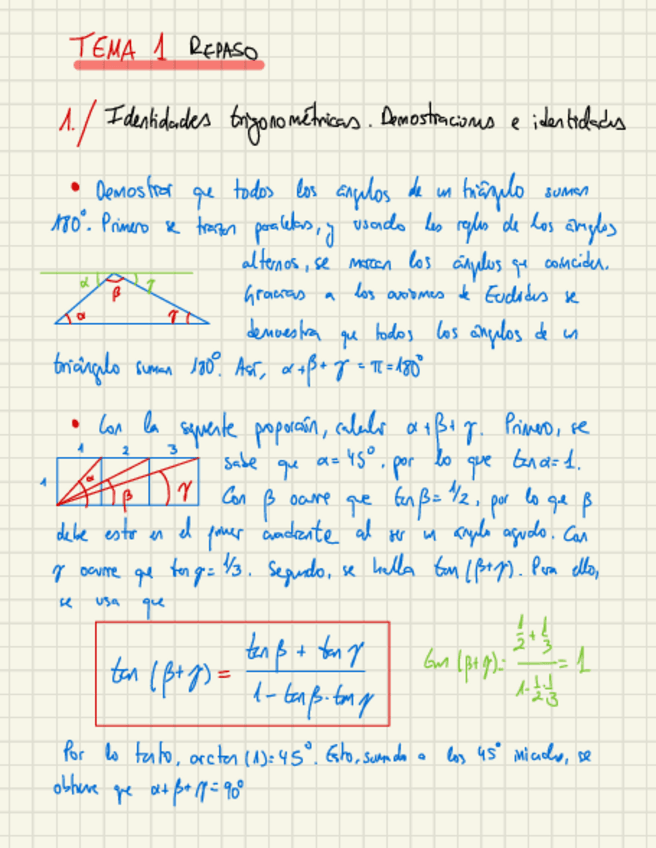 TEMA 1 REPASO
1./ Identidades trigonométricas. Demostracions e identidades
• Demostrar que todos los ángulos de un triángulo suman
180°. Primero se trazan paralelas, y usando las reglas de los ángulos
alternos, se marcan los ángulos q coinciden.
α β γ
Gracias a los axiomas de Euclides se
α γ
demuestra que todos los ángulos de un
triángulo suman 180°. Así, α+β+γ=π=180°
• Con la siguiente proporción, calcular α+β+γ. Primero, se
1 2 3
sabe que α=45°, por lo que tan α=1.
1 α β γ
Con β ocurre que tan β=1/2, por lo que β
debe estar en el primer cuadrante al ser un ángulo agudo. Con
γ ocurre que tan γ=1/3. Segundo, se halla tan (β+γ). Para ello,
se usa que
tan (β+γ) = (tan β + tan γ) / (1-tan β·tan γ)
tan (β+γ)= (1/2+1/3) / (1-1/2·1/3) = 1
Por lo tanto, arctan (1)=45°. Esto, sumado a los 45° iniciales, se
obtiene que α+β+γ=90°